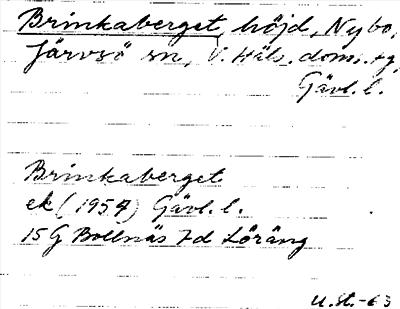 Brinkaberget, höjd, Nybo,
Järvsö sn, V. Häls. doms. tg,
Gävl. l.
Brinkaberget
ek (1957) Gävl. l.
15G Bollnäs 7d Löräng
U.St.-63